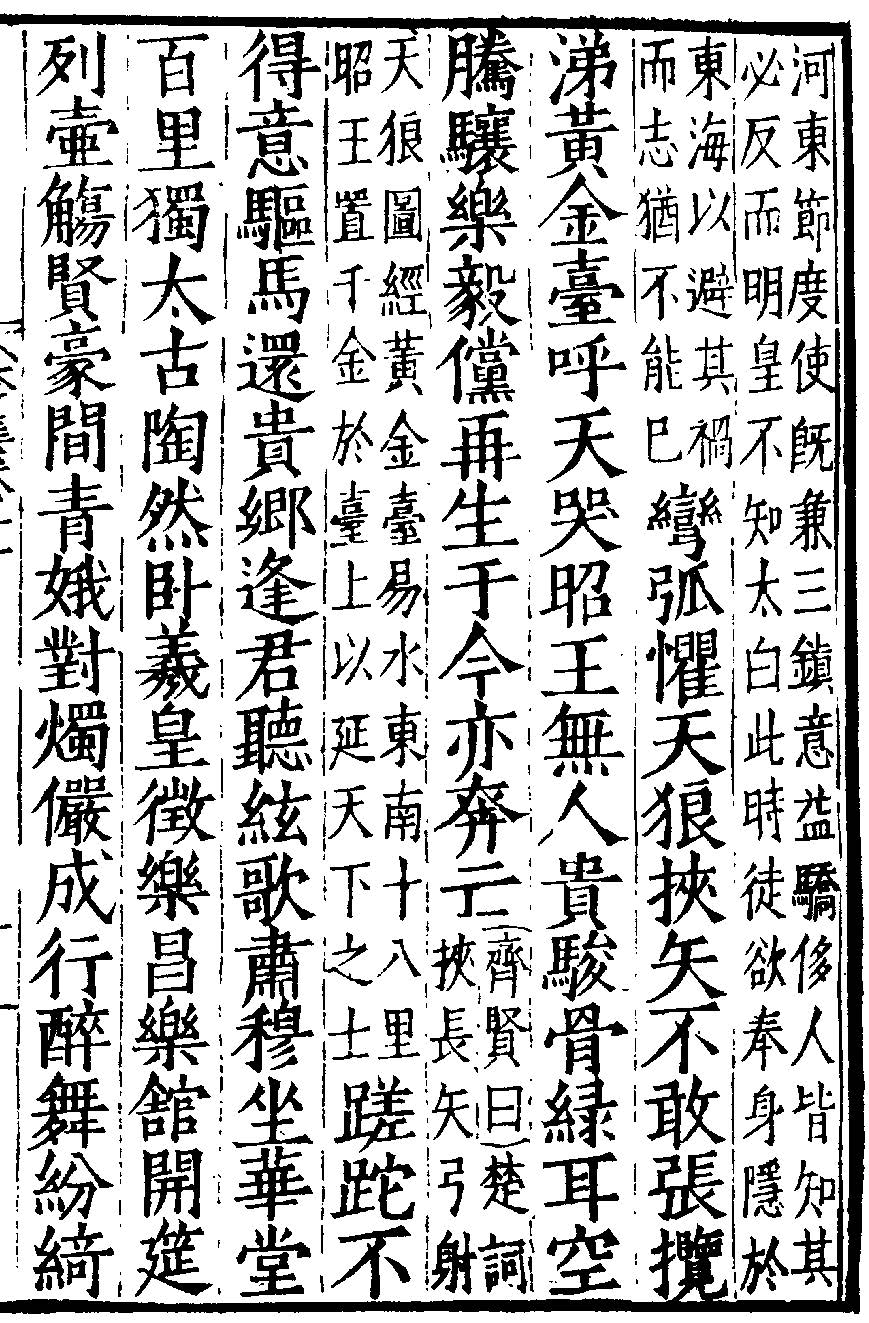 河東節度使既兼三鎮意益驕侈人皆知其
必反而明皇不知太白此時徒欲奉身隱於
東海以避其禍
而志猶不能已
彎弧懼天狼挾矢不敢張攬
涕黃金臺呼天哭昭王無人貴駿骨緑耳空
騰驤樂毅儻再生于今亦奔亡
齊賢曰楚詞
挾長矢弓射
天狼圖經黃金臺易水東南十八里
昭王置千金於臺上以延天下之士
蹉跎不
得意驅馬還貴鄉逢君聽絃歌肅穆坐華堂
百里獨太古陶然卧羲皇徵樂昌樂館開筵
列壷觴賢豪間青娥對燭儼成行醉舞紛綺